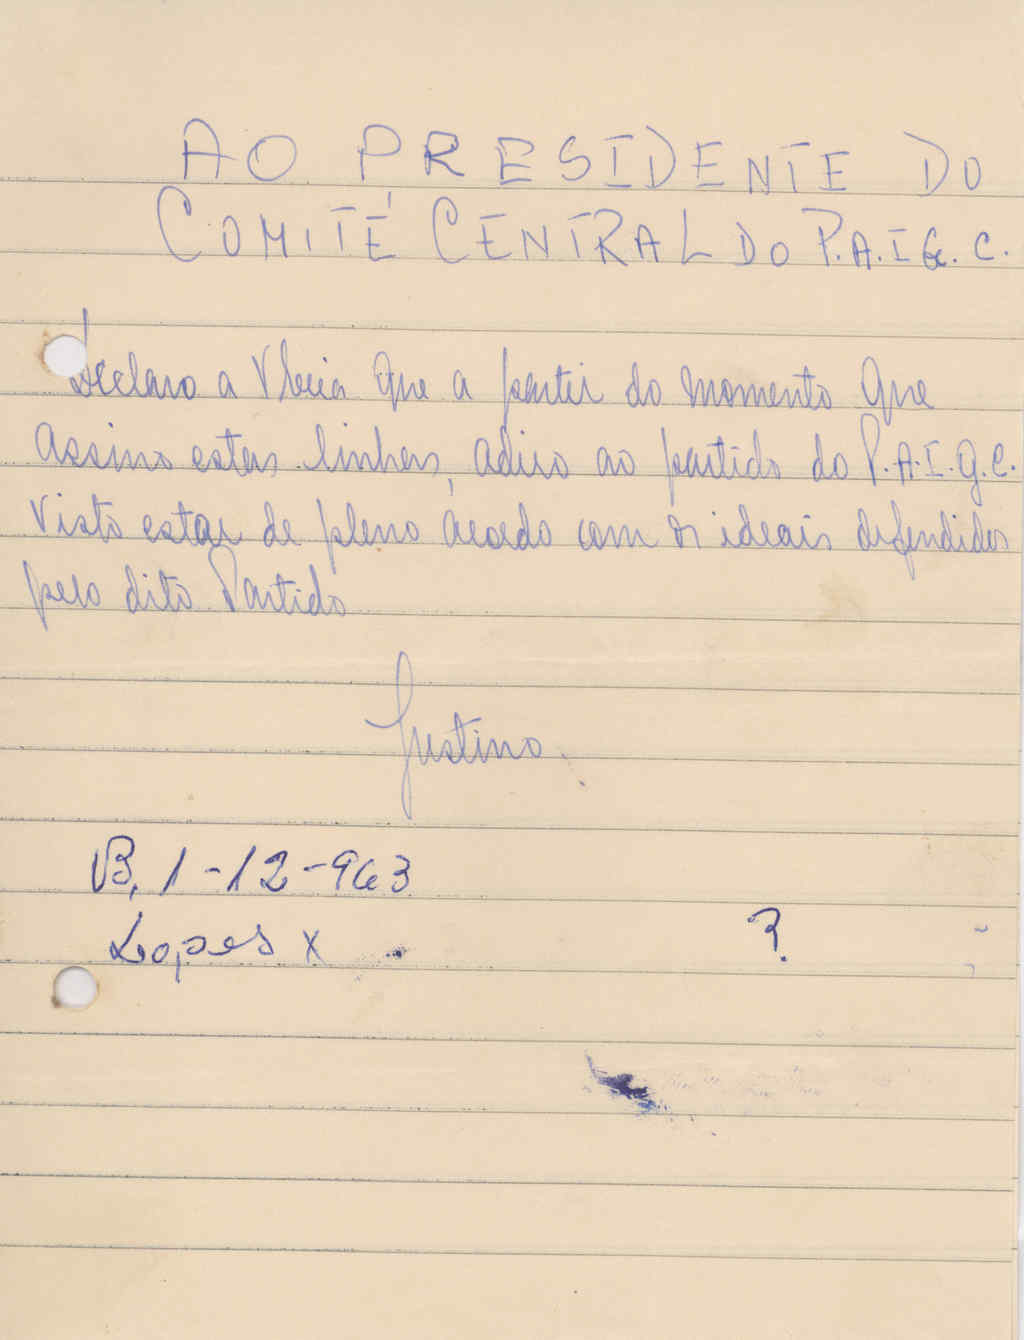 AO PRESIDENTE DO
COMITÉ CENTRAL DO P.A.I G. C.
Declaro a que a partir do momento que
assino estas linhas, adiro ao partido do P.A.I.G.C.
visto estar de pleno acordo com os ideais defendidos
pelo dito Partido
Justino.
B, 1-12-963
Lopes x ?